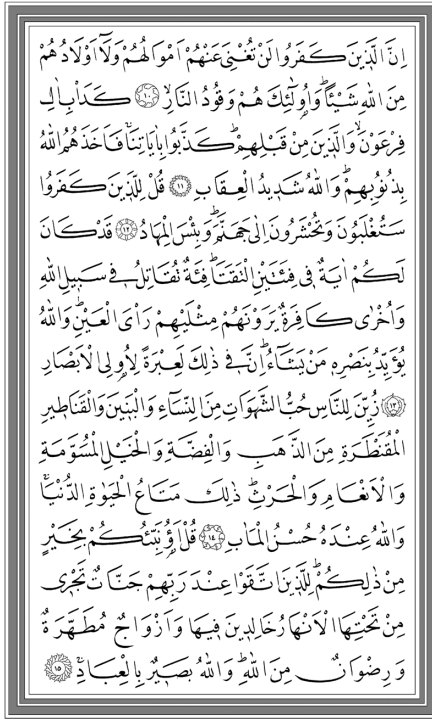 اِنَّ الَّذٖينَ كَفَرُوا لَنْ تُغْنِيَ عَنْهُمْ اَمْوَالُهُمْ وَلَٓا اَوْلَادُهُمْ
مِنَ اللّٰهِ شَيْـًٔاؕ وَاُو۬لٰٓئِكَ هُمْ وَقُودُ النَّارِۙ ﴿١٠﴾ كَدَأْبِ اٰلِ
فِرْعَوْنَۙ وَالَّذٖينَ مِنْ قَبْلِهِمْؕ كَذَّبُوا بِاٰيَاتِنَاۚ فَاَخَذَهُمُ اللّٰهُ
بِذُنُوبِهِمْؕ وَاللّٰهُ شَدٖيدُ الْعِقَابِ ﴿١١﴾ قُلْ لِلَّذٖينَ كَفَرُوا
سَتُغْلَبُونَ وَتُحْشَرُونَ اِلٰى جَهَنَّمَؕ وَبِئْسَ الْمِهَادُ ﴿١٢﴾ قَدْ كَانَ
لَكُمْ اٰيَةٌ فٖي فِئَتَيْنِ الْتَقَتَاؕ فِئَةٌ تُقَاتِلُ فٖي سَبٖيلِ اللّٰهِ
وَاُخْرٰى كَافِرَةٌ يَرَوْنَهُمْ مِثْلَيْهِمْ رَأْيَ الْعَيْنِؕ وَاللّٰهُ
يُؤَيِّدُ بِنَصْرِهٖ مَنْ يَشَٓاءُؕ اِنَّ فٖي ذٰلِكَ لَعِبْرَةً لِاُو۬لِي الْاَبْصَارِ
﴿١٣﴾ زُيِّنَ لِلنَّاسِ حُبُّ الشَّهَوَاتِ مِنَ النِّسَٓاءِ وَالْبَنٖينَ وَالْقَنَاطٖيرِ
الْمُقَنْطَرَةِ مِنَ الذَّهَبِ وَالْفِضَّةِ وَالْخَيْلِ الْمُسَوَّمَةِ
وَالْاَنْعَامِ وَالْحَرْثِؕ ذٰلِكَ مَتَاعُ الْحَيٰوةِ الدُّنْيَاۚ
وَاللّٰهُ عِنْدَهُ حُسْنُ الْمَاٰبِ ﴿١٤﴾ قُلْ اَؤُ۬نَبِّئُكُمْ بِخَيْرٍ
مِنْ ذٰلِكُمْؕ لِلَّذٖينَ اتَّقَوْا عِنْدَ رَبِّهِمْ جَنَّاتٌ تَجْرٖي
مِنْ تَحْتِهَا الْاَنْهَارُ خَالِدٖينَ فٖيهَا وَاَزْوَاجٌ مُطَهَّرَةٌ
وَرِضْوَانٌ مِنَ اللّٰهِؕ وَاللّٰهُ بَصٖيرٌ بِالْعِبَادِۚ ﴿١٥﴾